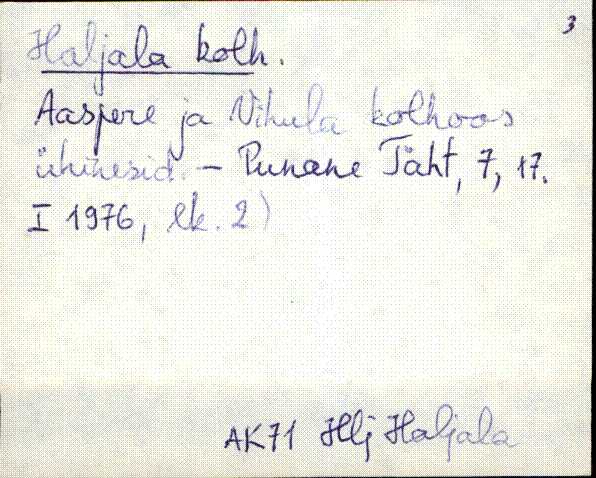 3
Haljala kolh.
Aaspere ja Vihula kolhoos
ühinesid. – Punane Täht, 7, 17.
I 1976, lk. 2)
AK71 Hlj Haljala